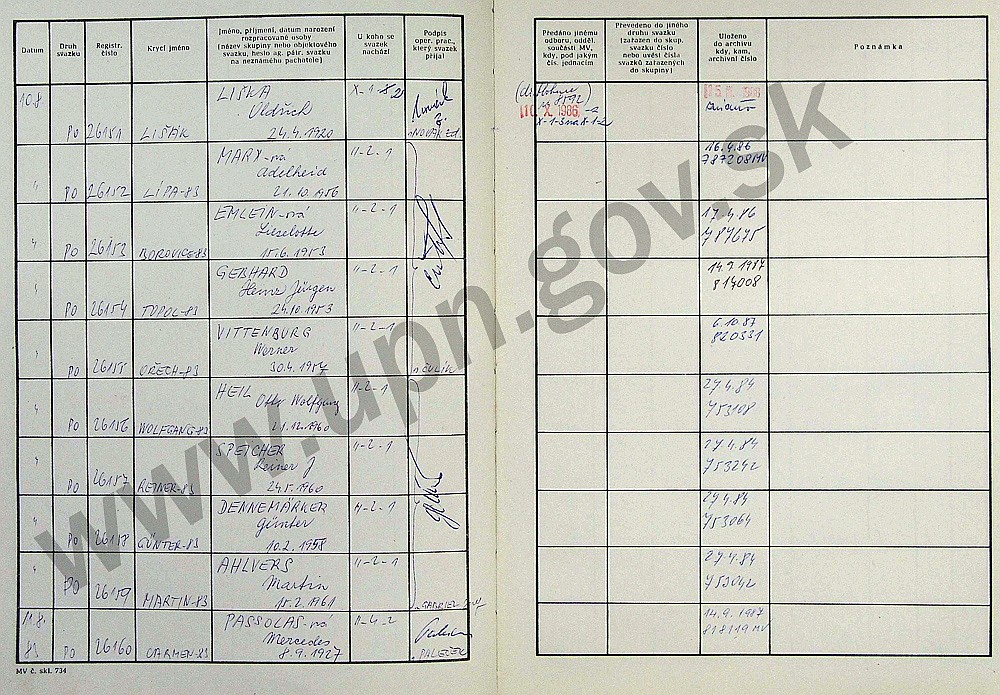 Datum
Druh
svazku
Registr.
číslo
Krycí jméno
Jméno, příjmení, datum narození
rozpracované osoby
(název skupiny nebo objektového
svazku, heslo ag. pátr. svazku
na neznámého pachatele)
U koho se
svazek
nachází
Podpis
oper. prac.,
který svazek
přijal
Předáno jinému
odboru, odděl.
součásti MV,
kdy, pod jakým
čís. jednacím
Převedeno do jiného
druhu svazku
(zařazen do skup.
svazku číslo
nebo uvésti čísla
svazků zařazených
do skupiny)
Uloženo
do archivu
kdy, kam,
archivní číslo
Poznámka
10.8
PO 26151 LIŠÁK
LIŠKA
Oldřich
24.4.1920
X-1-
NOVÁK
X. 1986
" PO 26152 LÍPA-83
MARX-ná
Adelheid
21.10.1956
11-2-1
16.4.86
787208MV
" PO 26153 BOROVICE-83
EMLEIN-ná
Lieselotte
15.6.1953
11-2-1
17.4.86
787675
" PO 26154 TOPOL-83
GEBHARD
Heinz Jürgen
24.10.1953
11-2-1
14.9.1987
814008
" PO 26155 OŘECH-83
VITTENBURG
Werner
30.4.1957
11-2-1
6.10.87
820331
" PO 26156 WOLFGANG-83
HEIL
Otto Wolfgang
21.12.1960
11-2-1
27.4.84
753108
" PO 26157 REINER-83
SPEICHER
Reiner J
24.5.1960
11-2-1
27.4.84
753242
" PO 26158 GÜNTER-83
DENNEMÄRKER
Günter
10.2.1958
11-2-1
27.4.84
753064
" PO 26159 MARTIN-83
AHLVERS
Martin
15.2.1961
11-2-1
GABRIEL
27.4.84
753042
11.8.
83 PO 26160 CARMEN-83
PASSOLAS-ná
Mercedes
8.9.1927
11-4-2
PALEČEK
14.9.1987
818119 MV
MV č. skl. 734
www.upn.gov.sk